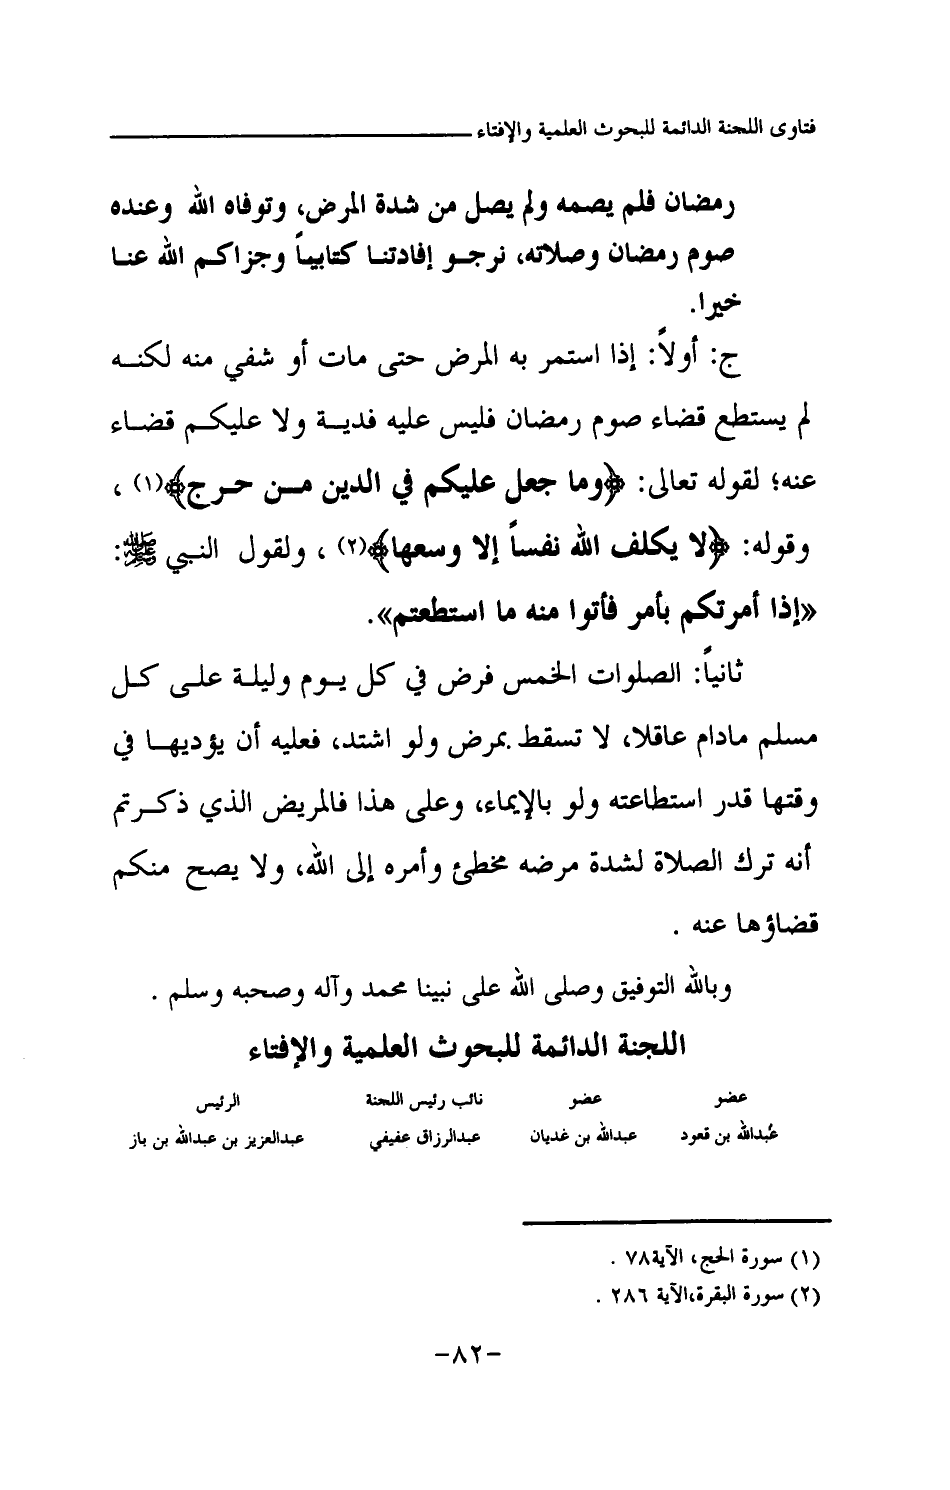 فتاوى اللجنة الدائمة للبحوث العلمية والإفتاء
رمضان فلم يصمه ولم يصل من شدة المرض، وتوفاه الله وعنده
صوم رمضان وصلاته، نرجـو إفادتنـا كتابيـاً وجزاكـم الله عنـا
خيرا.
ج: أولاً: إذا استمر به المرض حتى مات أو شفي منه لكنـه
لم يستطع قضاء صوم رمضان فليس عليه فديـة ولا عليكـم قضـاء
عنه؛ لقوله تعالى: ﴿وما جعل عليكم في الدين مـن حـرج﴾(١) ،
وقوله: ﴿لا يكلف الله نفساً إلا وسعها﴾(٢) ، ولقول النبـي ﷺ:
«إذا أمرتكم بأمر فأتوا منه ما استطعتم».
ثانياً: الصلوات الخمس فرض في كل يـوم وليلـة علـى كـل
مسلم مادام عاقلا، لا تسقط بمرض ولو اشتد، فعليه أن يؤديهـا في
وقتها قدر استطاعته ولو بالإيماء، وعلى هذا فالمريض الذي ذكـرتم
أنه ترك الصلاة لشدة مرضه مخطئ وأمره إلى الله، ولا يصح منكم
قضاؤها عنه .
وبالله التوفيق وصلى الله على نبينا محمد وآله وصحبه وسلم .
اللجنة الدائمة للبحوث العلمية والإفتاء
عضو عضو نائب رئيس اللجنة الرئيس
عبدالله بن قعود عبدالله بن غديان عبدالرزاق عفيفي عبدالعزيز بن عبدالله بن باز
(١) سورة الحج، الآية٧٨ .
(٢) سورة البقرة،الآية ٢٨٦ .
-٨٢-